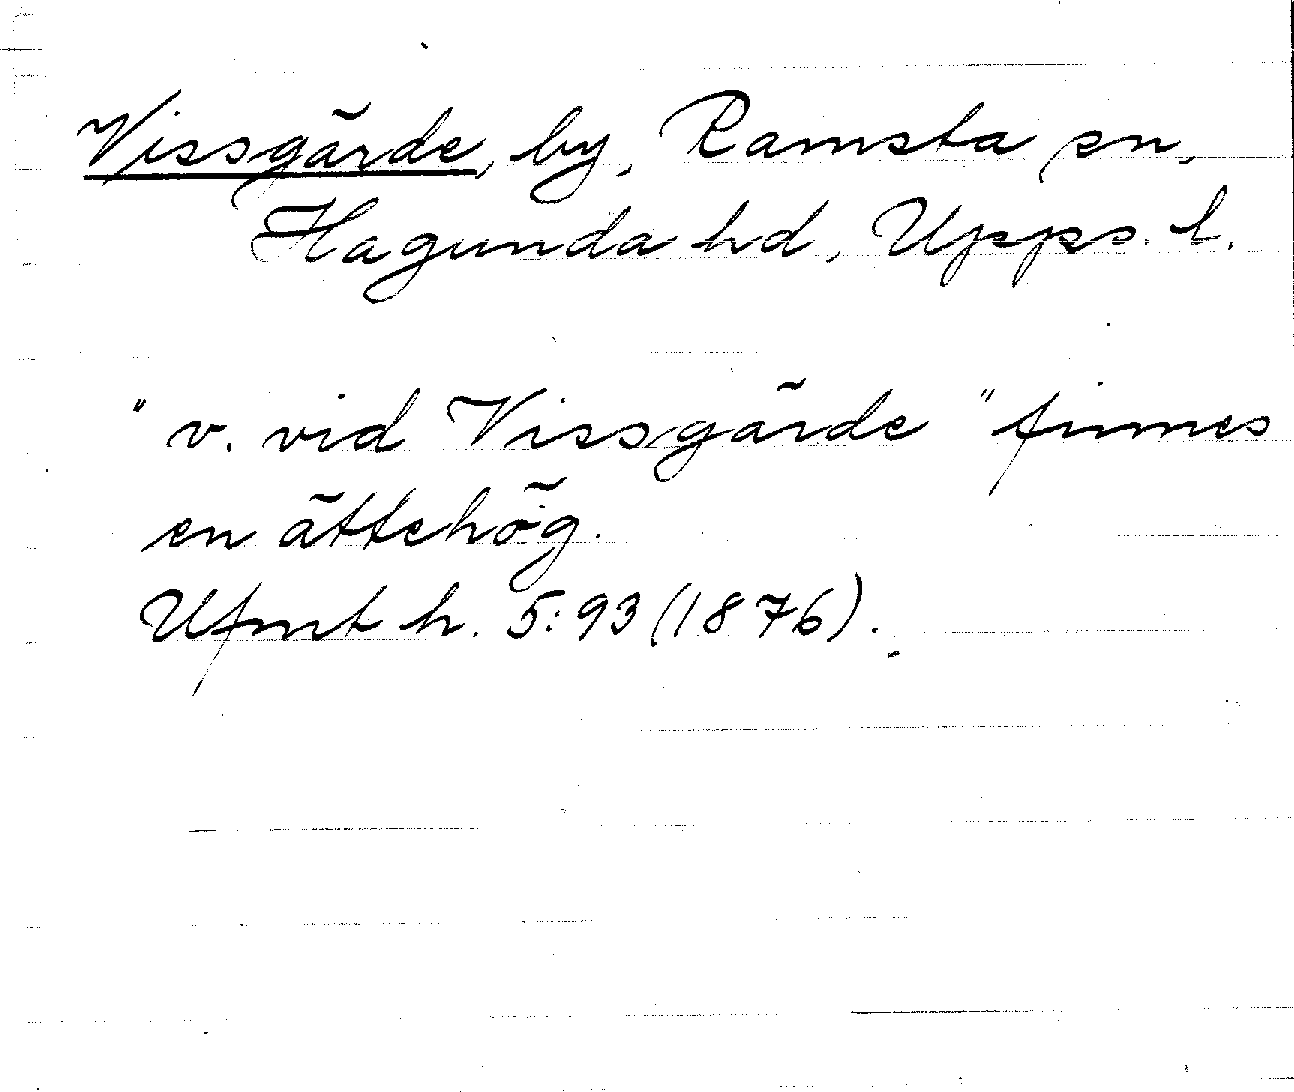 Vissgärde, by, Ramsta sn,
Hagunda hd, Upps. l.
" v. vid Vissgärde " finnes
en ättehög.
Ufmt h. 5:93 (1876).